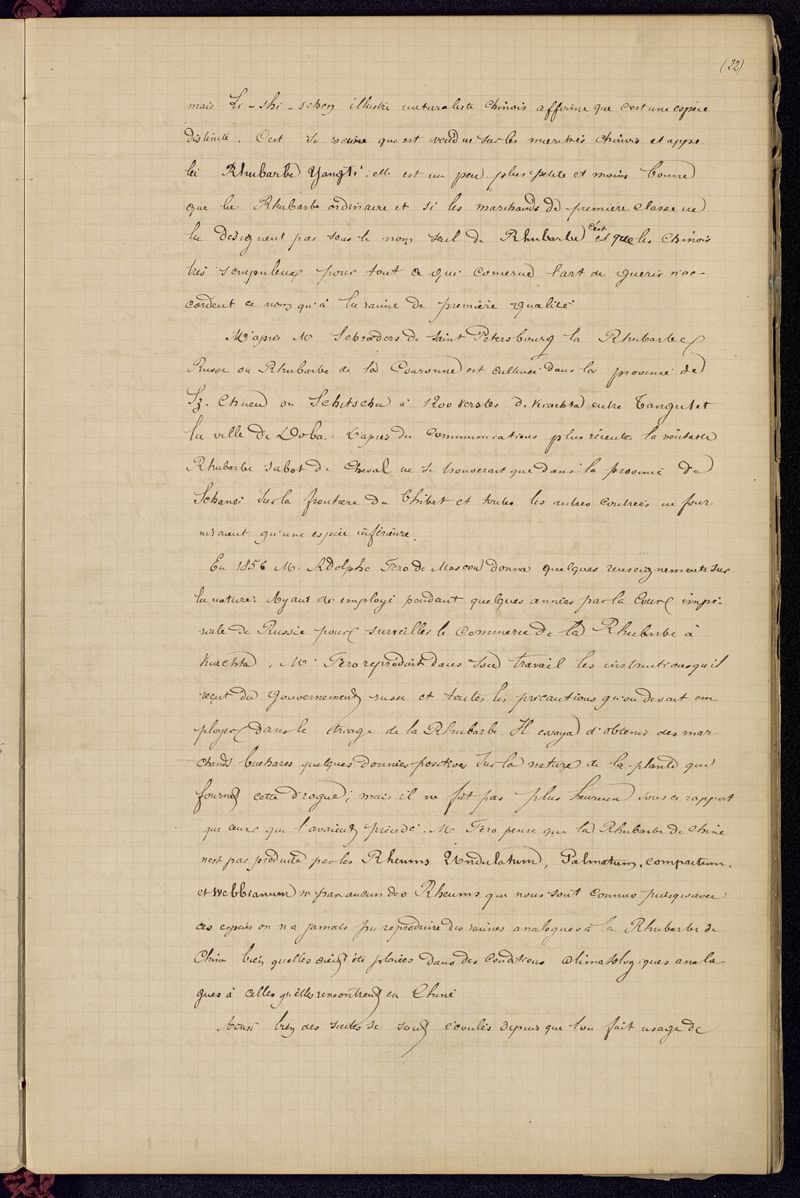 (22)
mais Li-shi-schen illustre naturaliste chinois affirme que c'est une espèce
distincte. C'est sa racine qui est vendue sur les marchés chinois et appe
lée Rhubarbe Yangti: elle est un peu plus petite et moins bonne
que la Rhubarbe ordinaire et si les marchands de première classe ne
la designent pas sous le nom seul de Rhubarbe c'est que les Chinois
très scrupuleux pour tout ce qui concerne l'art de guerir n'ac-
cordent ce nom qu'à la racine de première qualité
D'après M. Schröders de Saint Pétersbourg la Rhubarbe
Russe ou Rhubarbe de la Couronne est cultivée dans la province de
Sz. Chuen ou Schitschu à 1200 verstes de Kiachta entre Tangut et
la ville de Doba. D'après des communications plus récentes la véritable
Rhubarbe sabot de Cheval ne se trouverait que dans la province de
Schansi sur la frontière du Thibet et toutes les autres contrées ne four-
niraient qu'une espèce inférieure.
En 1856 M. Adolphe Fero de Moscou donna quelques renseignements sur
la nature. Ayant été employé pendant quelques années par la Cour impé-
riale de Russie pour surveiller le commerce de la Rhubarbe à
Kiachta, M. Fero reproduit dans son travail les instructions qu'il
reçut du Gouvernement russe et toutes les précautions qu'on devait em
ployer dans le triage de la Rhubarbe. Il essaya d'obtenir des mar-
chands buchares quelques données positives sur la nature de la plante qui
fournit cette drogue; mais il ne fut pas plus heureux sous ce rapport
que ceux qui l'avaient précédé. M. Fero pense que la Rhubarbe de Chine
n'est pas produite par les Rheums Undulatum, Palmatum, compactum,
et Webbianum ni par aucun des Rheums qui nous sont connus puisqu'avec
ces espèces on n'a jamais pu reproduire des racines analogues à la Rhubarbe de
Chine bien qu'elles aient été placées dans des conditions climatologiques analo
gues à celles qu'elles rencontrent en Chine
Ainsi bien des siècles se sont écoulés depuis que l'on fait usage de